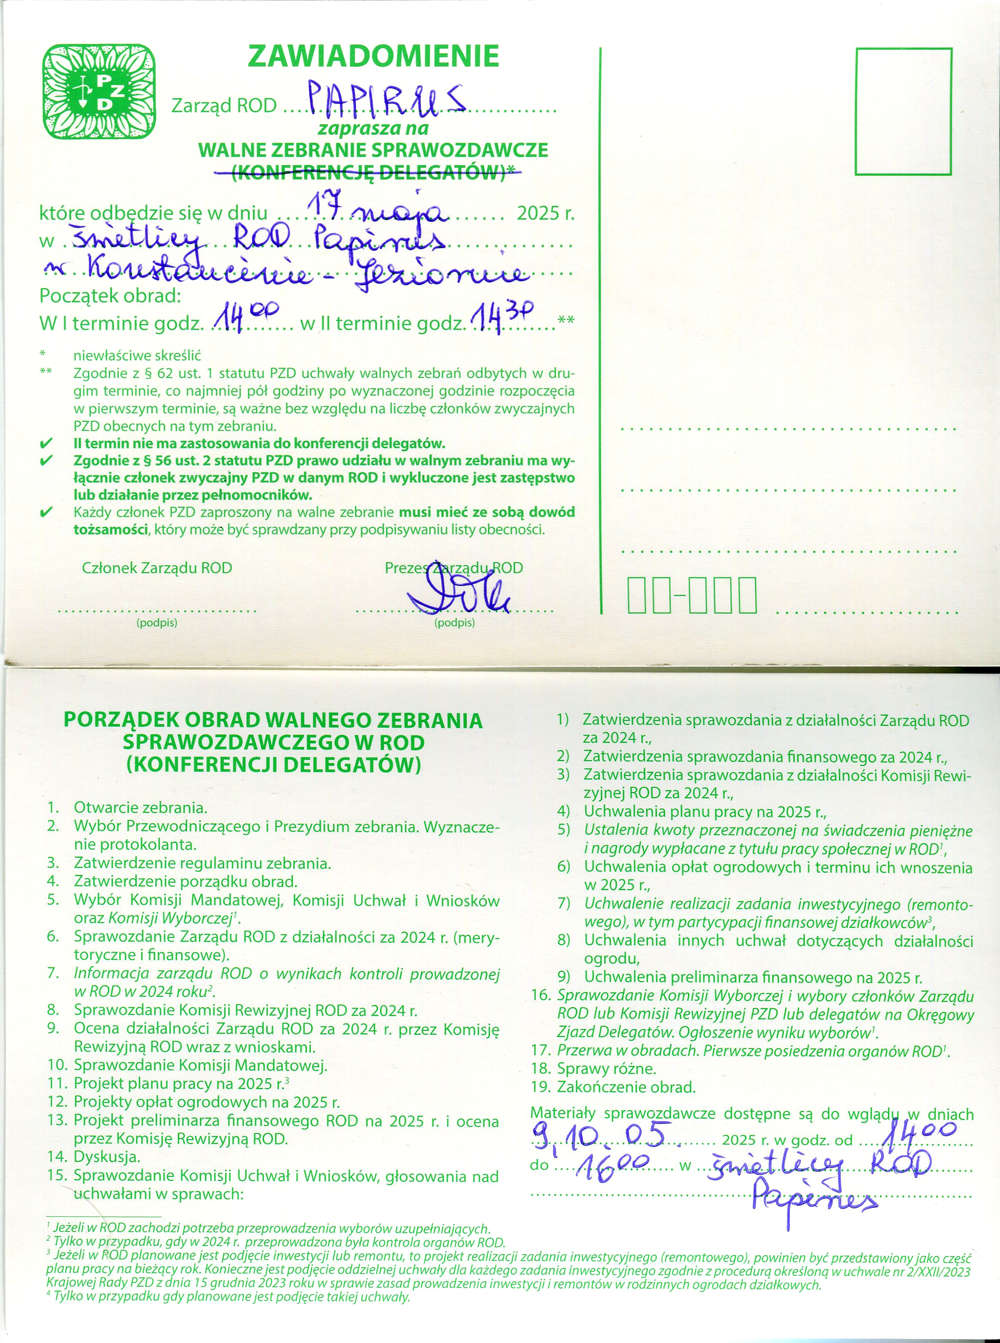 P
Z
D
ZAWIADOMIENIE
Zarząd ROD ... PAPIRUS
zaprasza na
WALNE ZEBRANIE SPRAWOZDAWCZE
(KONFERENCJĘ DELEGATÓW)*
które odbędzie się w dniu ... 17 maja ... 2025 r.
w ... świetlicy ROD Papirus
w Konstancinie - Jeziornie
Początek obrad:
W I terminie godz. 14 00 ... w II terminie godz. 14 30 ... **
* niewłaściwe skreślić
** Zgodnie z § 62 ust. 1 statutu PZD uchwały walnych zebrań odbytych w dru-
gim terminie, co najmniej pół godziny po wyznaczonej godzinie rozpoczęcia
w pierwszym terminie, są ważne bez względu na liczbę członków zwyczajnych
PZD obecnych na tym zebraniu.
✔ II termin nie ma zastosowania do konferencji delegatów.
✔ Zgodnie z § 56 ust. 2 statutu PZD prawo udziału w walnym zebraniu ma wy-
łącznie członek zwyczajny PZD w danym ROD i wykluczone jest zastępstwo
lub działanie przez pełnomocników.
✔ Każdy członek PZD zaproszony na walne zebranie musi mieć ze sobą dowód
tożsamości, który może być sprawdzany przy podpisywaniu listy obecności.
Członek Zarządu ROD
Prezes Zarządu ROD
(podpis)
(podpis)
PORZĄDEK OBRAD WALNEGO ZEBRANIA
SPRAWOZDAWCZEGO W ROD
(KONFERENCJI DELEGATÓW)
1. Otwarcie zebrania.
2. Wybór Przewodniczącego i Prezydium zebrania. Wyznacze-
nie protokolanta.
3. Zatwierdzenie regulaminu zebrania.
4. Zatwierdzenie porządku obrad.
5. Wybór Komisji Mandatowej, Komisji Uchwał i Wniosków
oraz Komisji Wyborczej¹.
6. Sprawozdanie Zarządu ROD z działalności za 2024 r. (mery-
toryczne i finansowe).
7. Informacja zarządu ROD o wynikach kontroli prowadzonej
w ROD w 2024 roku².
8. Sprawozdanie Komisji Rewizyjnej ROD za 2024 r.
9. Ocena działalności Zarządu ROD za 2024 r. przez Komisję
Rewizyjną ROD wraz z wnioskami.
10. Sprawozdanie Komisji Mandatowej.
11. Projekt planu pracy na 2025 r.³
12. Projekty opłat ogrodowych na 2025 r.
13. Projekt preliminarza finansowego ROD na 2025 r. i ocena
przez Komisję Rewizyjną ROD.
14. Dyskusja.
15. Sprawozdanie Komisji Uchwał i Wniosków, głosowania nad
uchwałami w sprawach:
1) Zatwierdzenia sprawozdania z działalności Zarządu ROD
za 2024 r.,
2) Zatwierdzenia sprawozdania finansowego za 2024 r.,
3) Zatwierdzenia sprawozdania z działalności Komisji Rewi-
zyjnej ROD za 2024 r.,
4) Uchwalenia planu pracy na 2025 r.,
5) Ustalenia kwoty przeznaczonej na świadczenia pieniężne
i nagrody wypłacane z tytułu pracy społecznej w ROD¹,
6) Uchwalenia opłat ogrodowych i terminu ich wnoszenia
w 2025 r.,
7) Uchwalenie realizacji zadania inwestycyjnego (remonto-
wego), w tym partycypacji finansowej działkowców³,
8) Uchwalenia innych uchwał dotyczących działalności
ogrodu,
9) Uchwalenia preliminarza finansowego na 2025 r.
16. Sprawozdanie Komisji Wyborczej i wybory członków Zarządu
ROD lub Komisji Rewizyjnej PZD lub delegatów na Okręgowy
Zjazd Delegatów. Ogłoszenie wyniku wyborów¹.
17. Przerwa w obradach. Pierwsze posiedzenia organów ROD¹.
18. Sprawy różne.
19. Zakończenie obrad.
Materiały sprawozdawcze dostępne są do wglądu w dniach
9,10. 05. ... 2025 r. w godz. od ... 14 00
do ... 16 00 ... w ... świetlicy ROD
Papirus
¹ Jeżeli w ROD zachodzi potrzeba przeprowadzenia wyborów uzupełniających.
² Tylko w przypadku, gdy w 2024 r. przeprowadzona była kontrola organów ROD.
³ Jeżeli w ROD planowane jest podjęcie inwestycji lub remontu, to projekt realizacji zadania inwestycyjnego (remontowego), powinien być przedstawiony jako część
planu pracy na bieżący rok. Konieczne jest podjęcie oddzielnej uchwały dla każdego zadania inwestycyjnego zgodnie z procedurą określoną w uchwale nr 2/XXII/2023
Krajowej Rady PZD z dnia 15 grudnia 2023 roku w sprawie zasad prowadzenia inwestycji i remontów w rodzinnych ogrodach działkowych.
⁴ Tylko w przypadku gdy planowane jest podjęcie takiej uchwały.